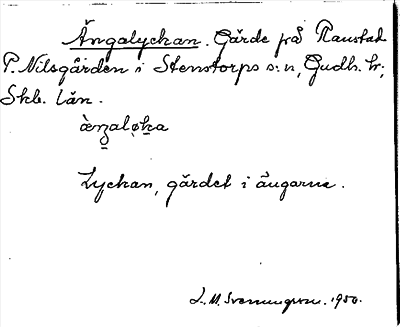 Ängalyckan. Gärde på Raustad
P. Nilsgården i Stenstorps s:n, Gudh. hr;
Skb. län.
æŋaløka
Lyckan, gärdet i ängarna.
1950.